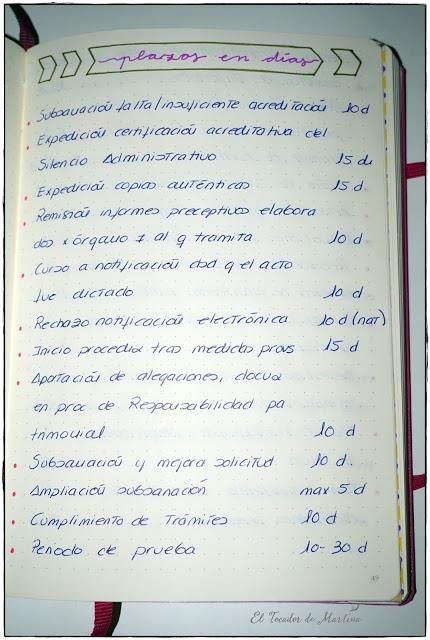 plazos en días
Subsanación falta/insuficiente acreditación 10 d
Expedición certificación acreditativa del
Silencio Administrativo 15 d
Expedición copias auténticas 15 d
Remisión informes preceptivos elabora
dos x órgano ≠ al q tramita 10 d
Curso a notificación dsd q el acto
fue dictado 10 d
Rechazo notificación electrónica 10 d (nat)
Inicio procedim tras medidas provs 15 d
Aportación de alegaciones, docum
en proc de Responsabilidad pa
trimonial 10 d
Subsanación y mejora solicitud 10 d
Ampliación subsanación max 5 d
Cumplimiento de Trámites 10 d
Periodo de prueba 10-30 d
El Tocador de Martina